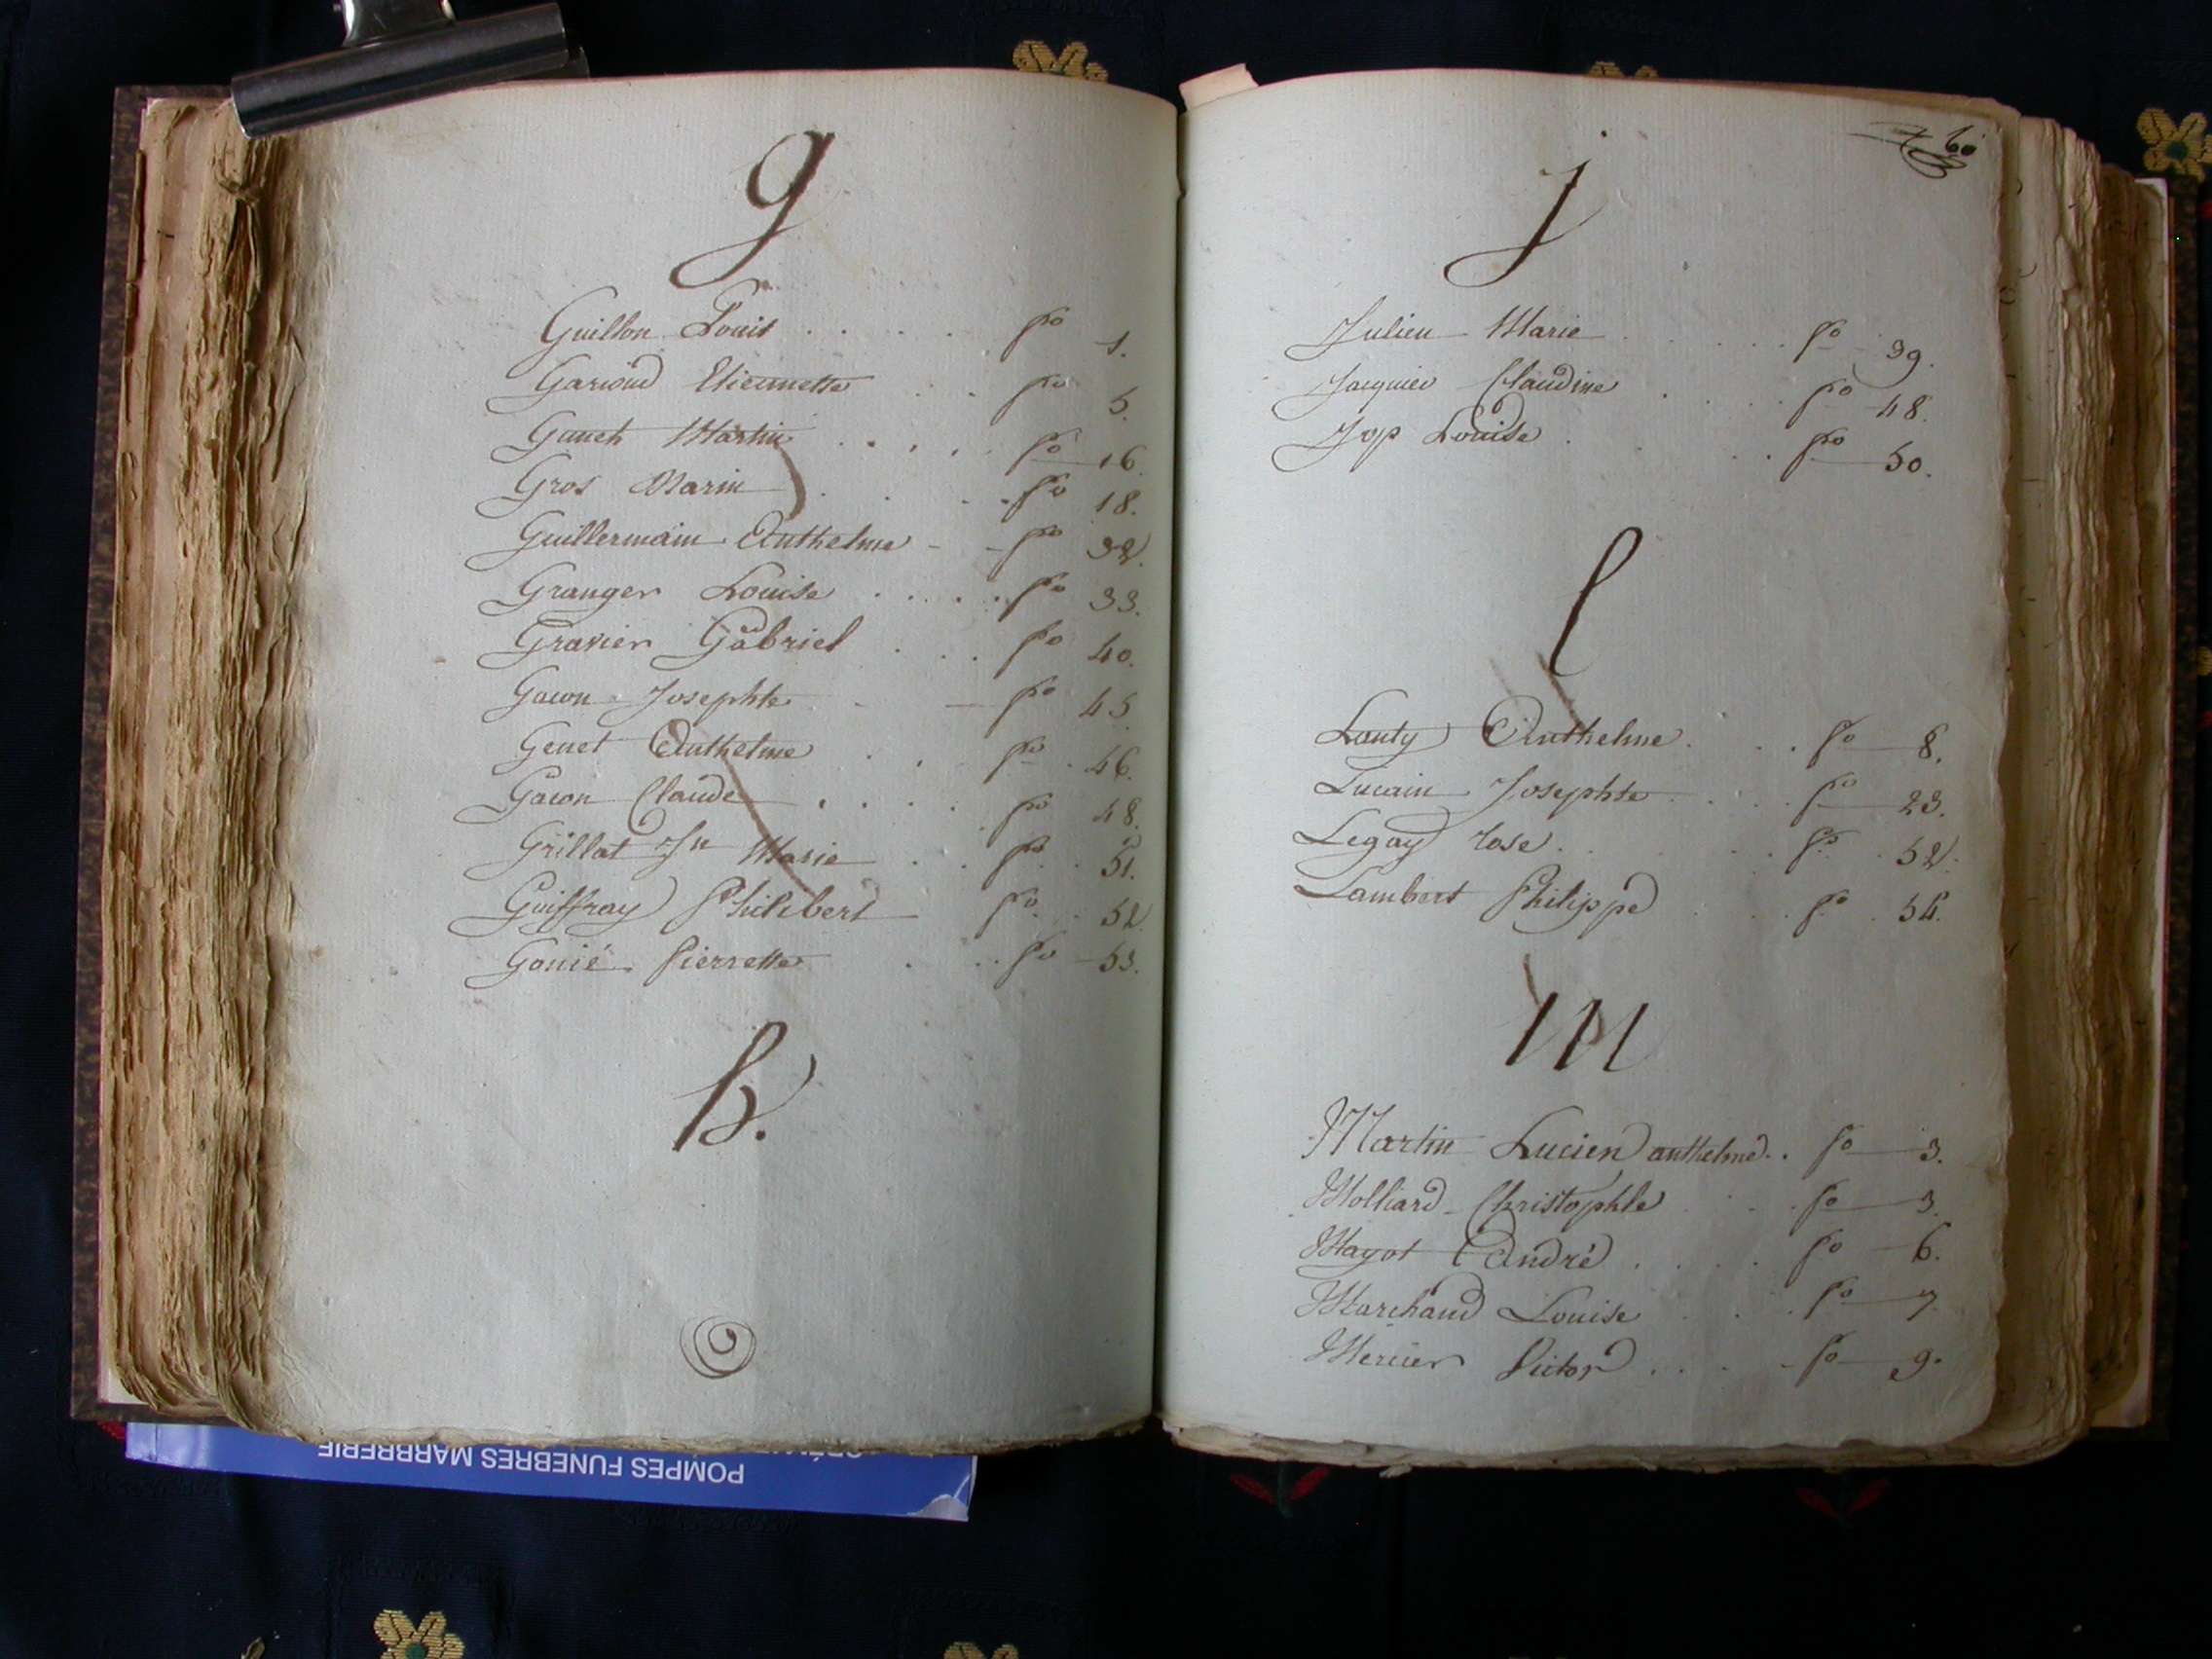 g
Guillon Louis . . . . . fo 1.
Garioud Etiennette . . fo 5.
Martin . . . . fo 16.
Gros Marin . . . fo 18.
Guillermain Anthelme - - fo 32.
Granger Louise . . . . . fo 33.
Gravier Gabriel . . . fo 40.
Gacon Josephte - - fo 45
Genet Anthelme . . fo . 46.
Gacon Claude . . . . . fo 48.
Grillat Jn Marie . . fo . 51.
Guiffray Philibert fo . 52.
Gonié Pierrette . . . fo 53.
h.
60
j
Julien Marie . . . . . fo 39.
Jacquier Claudine . . . . fo 48.
Jop Louise . . . . fo 50.
l
Louty Anthelme . . . fo 8.
Lucain Josephte . . . . fo 23.
Legay rose . . . . fo . 52.
Lambert Philippe . . . fo . 54.
m
Martin Lucien anthelme . . fo 3.
Molliard Christophle . . . fo 3.
Mayot André . . . . fo 6.
Marchand Louise . . . fo 7.
Mercier Victor . . . - fo 9.
POMPES FUNEBRES MARBRERIE